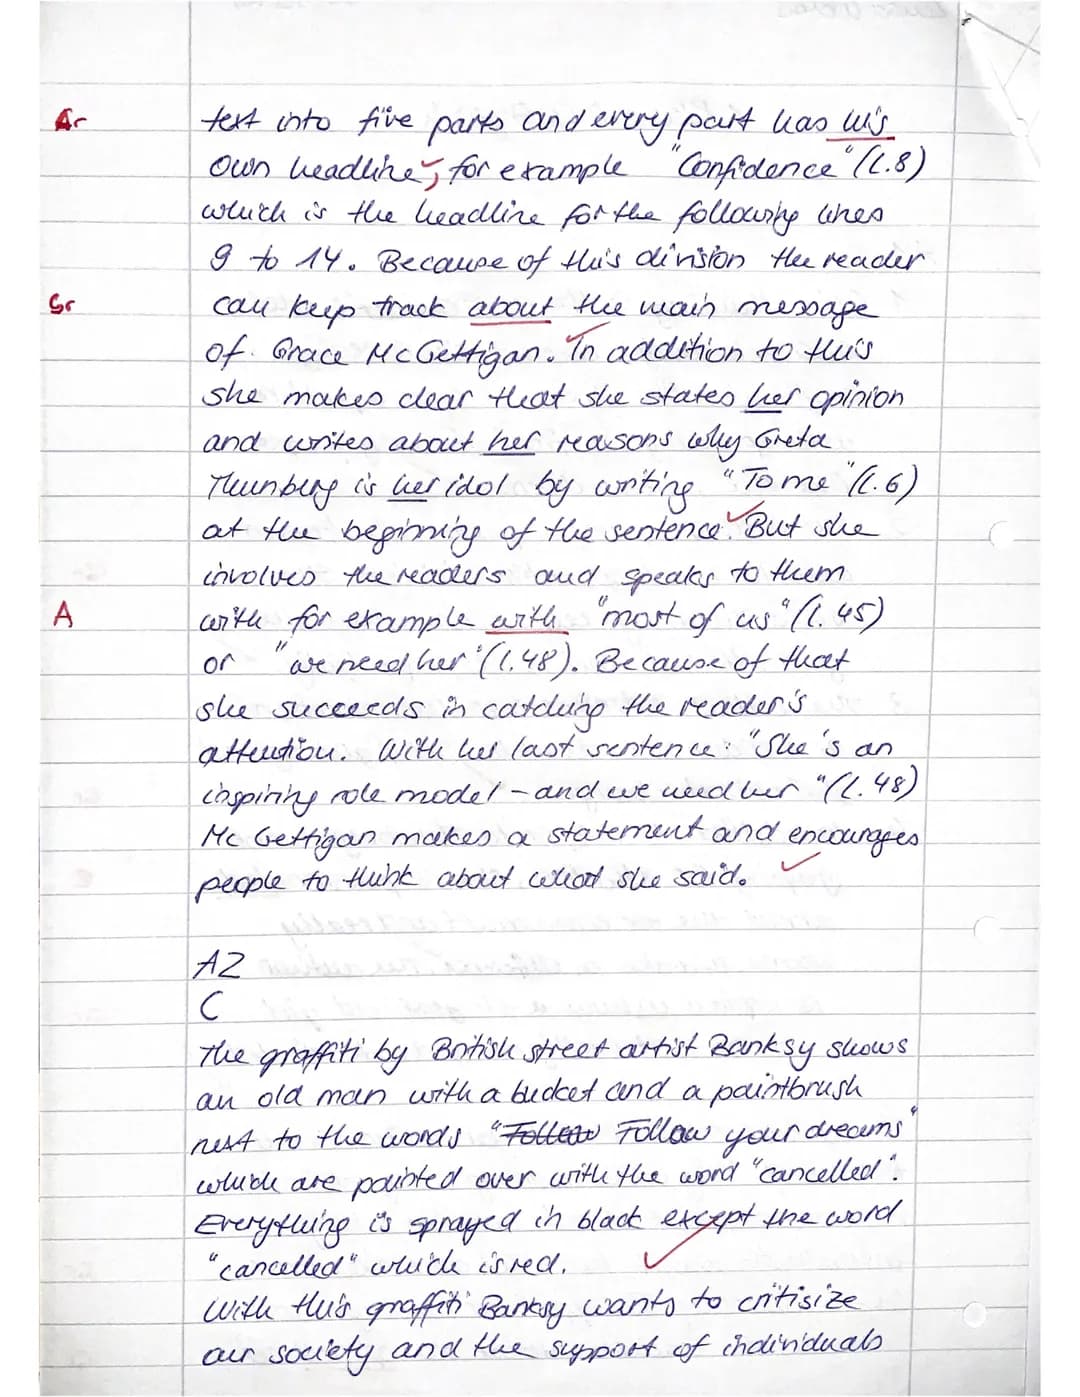 Gr text into five parts and every part has his
own headline, for example "Confidence" (l.8)
which is the headline for the following lines
9 to 14. Because of this division the reader
Gr can keep track about the main message
of Grace McGettigan. In addition to this
she makes clear that she states her opinion
and writes about her reasons why Greta
Thunberg is her idol by writing "To me" (l.6)
at the beginning of the sentence. But she
involves the readers and speaks to them
A with for example with "most of us" (l. 45)
or "we need her" (l.48). Because of that
she succeeds in catching the reader's
attention. With her last sentence: "She's an
inspiring role model - and we need her" (l.48)
Mc Gettigan makes a statement and encourages
people to think about what she said.
A2
C
The graffiti by British street artist Banksy shows
an old man with a bucket and a paintbrush
next to the words "Follow Follow your dreams"
which are painted over with the word "cancelled".
Everything is sprayed in black except the word
"cancelled" which is red.
With this graffiti Banksy wants to critisize
our society and the support of individuals